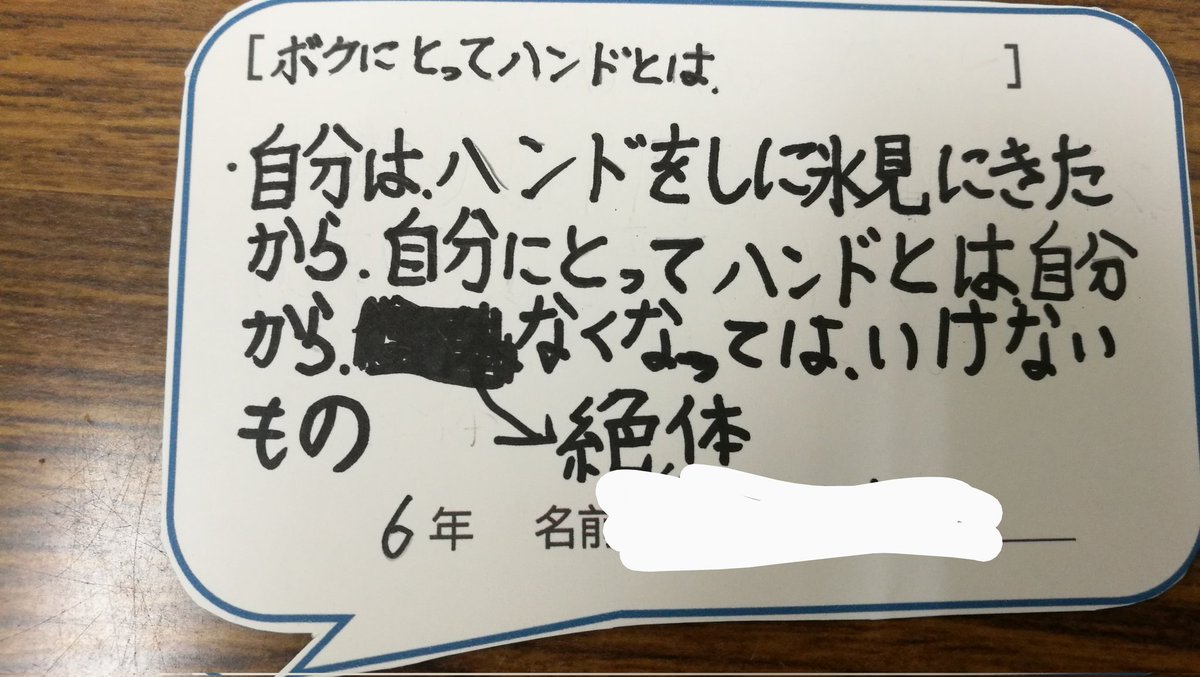 [ボクにとってハンドとは、]
・自分は、ハンドをしに氷見にきた
から、自分にとってハンドとは自分
から、なくなっては、いけない
もの →絶体
6年 名前